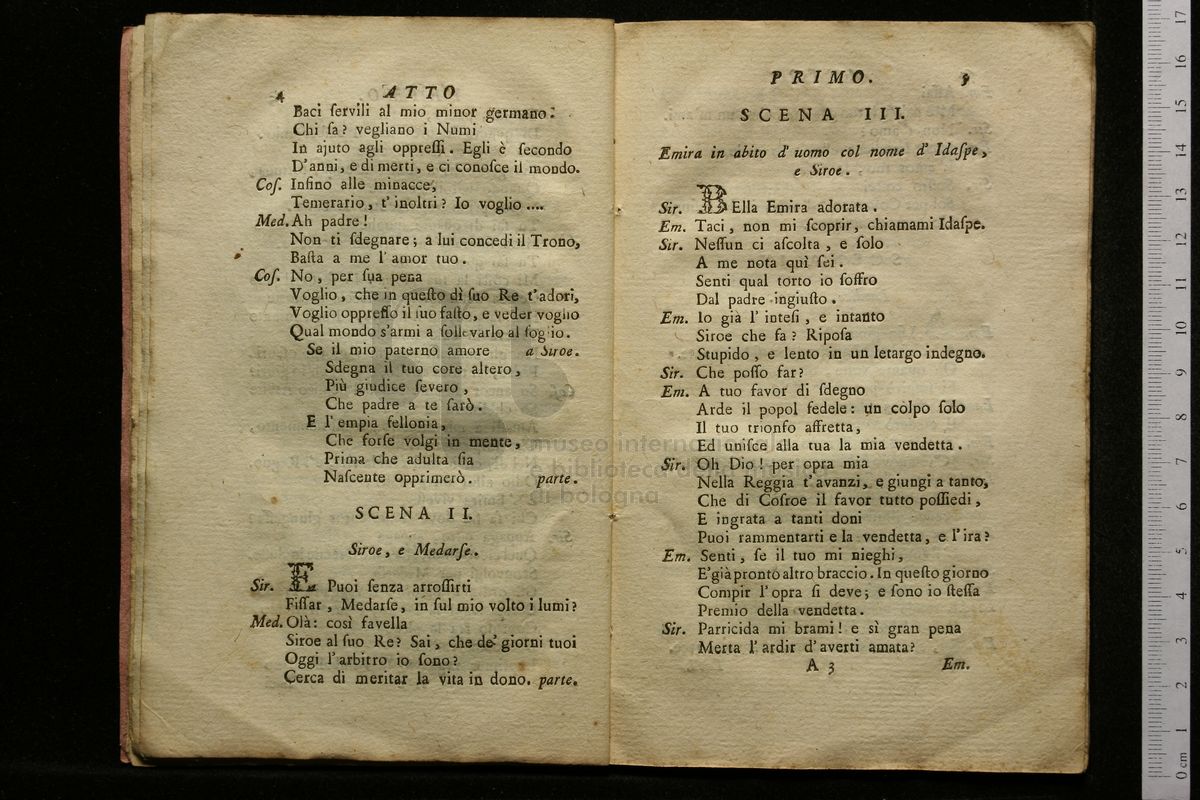 4 ATTO
Baci ſervili al mio minor germano:
Chi ſa? vegliano i Numi
In ajuto agli oppreſſi. Egli è ſecondo
D'anni, e di merti, e ci conoſce il mondo.
Coſ. Infino alle minacce,
Temerario, t'inoltri? Io voglio ....
Med. Ah padre!
Non ti ſdegnare; a lui concedi il Trono,
Baſta a me l'amor tuo.
Coſ. No, per ſua pena
Voglio, che in queſto dì ſuo Re t'adori,
Voglio oppreſſo il ſuo faſto, e veder voglio
Qual mondo s'armi a ſollevarlo al ſoglio.
Se il mio paterno amore a Siroe.
Sdegna il tuo core altero,
Più giudice ſevero,
Che padre a te ſarò.
E l'empia fellonia,
Che forſe volgi in mente,
Prima che adulta ſia
Naſcente opprimerò. parte.
SCENA II.
Siroe, e Medarſe.
Sir. E Puoi ſenza arroſſirti
Fiſſar, Medarſe, in ſul mio volto i lumi?
Med. Olà: così favella
Siroe al ſuo Re? Sai, che de' giorni tuoi
Oggi l'arbitro io ſono?
Cerca di meritar la vita in dono. parte.
PRIMO. 5
SCENA III.
Emira in abito d'uomo col nome d'Idaſpe,
e Siroe.
Sir. BElla Emira adorata.
Em. Taci, non mi ſcoprir, chiamami Idaſpe.
Sir. Neſſun ci aſcolta, e ſolo
A me nota quì ſei.
Senti qual torto io ſoffro
Dal padre ingiuſto.
Em. Io già l'inteſi, e intanto
Siroe che fa? Ripoſa
Stupido, e lento in un letargo indegno.
Sir. Che poſſo far?
Em. A tuo favor di ſdegno
Arde il popol fedele: un colpo ſolo
Il tuo trionfo affretta,
Ed uniſce alla tua la mia vendetta.
Sir. Oh Dio! per opra mia
Nella Reggia t'avanzi, e giungi a tanto,
Che di Coſroe il favor tutto poſſiedi,
E ingrata a tanti doni
Puoi rammentarti e la vendetta, e l'ira?
Em. Senti, ſe il tuo mi nieghi,
E'già pronto altro braccio. In queſto giorno
Compir l'opra ſi deve; e ſono io ſteſſa
Premio della vendetta.
Sir. Parricida mi brami! e sì gran pena
Merta l'ardir d'averti amata?
A 3 Em.
museo internazionale
e biblioteca della musica
di bologna
0 cm 1 2 3 4 5 6 7 8 9 10 11 12 13 14 15 16 17